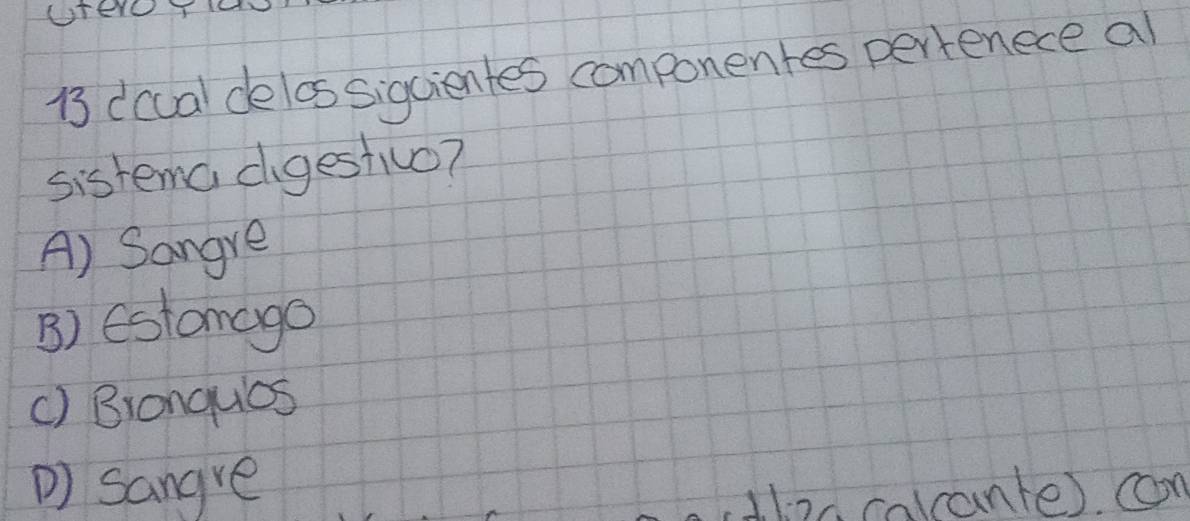 13 ¿cual de los siguientes componentes pertenece al
sistema digestivo?
A) Sangre
B) Estomago
C) Bronquios
D) Sangre
calcante). con